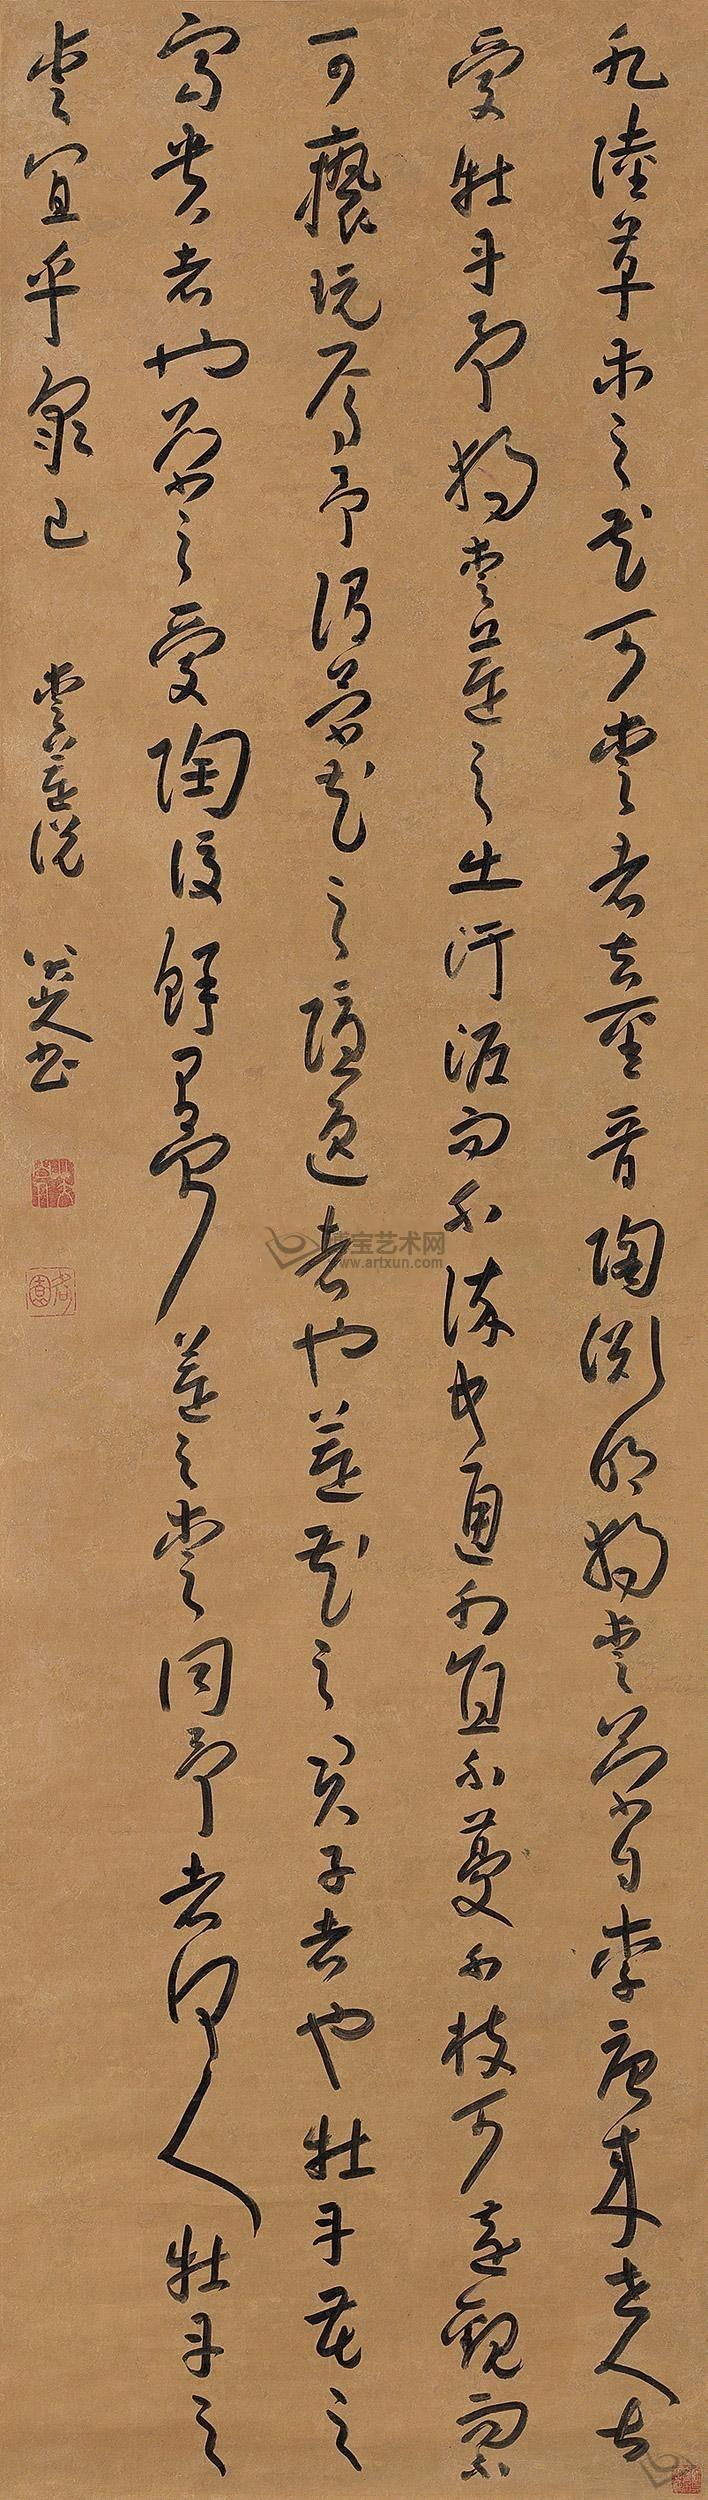 凡陸草木之花可愛者甚晉陶淵明獨愛菊自李唐來世人甚
愛牡丹予獨愛蓮之出汙泥而不染中通外直不蔓不枝可遠觀而不
可褻玩焉予謂菊花之隱逸者也蓮花之君子者也牡丹花之
富貴者也菊之愛陶後鮮有聞蓮之愛同予者何人牡丹之
愛宜乎衆已 愛蓮說 八大山人書
宝艺术网
www.artxun.com